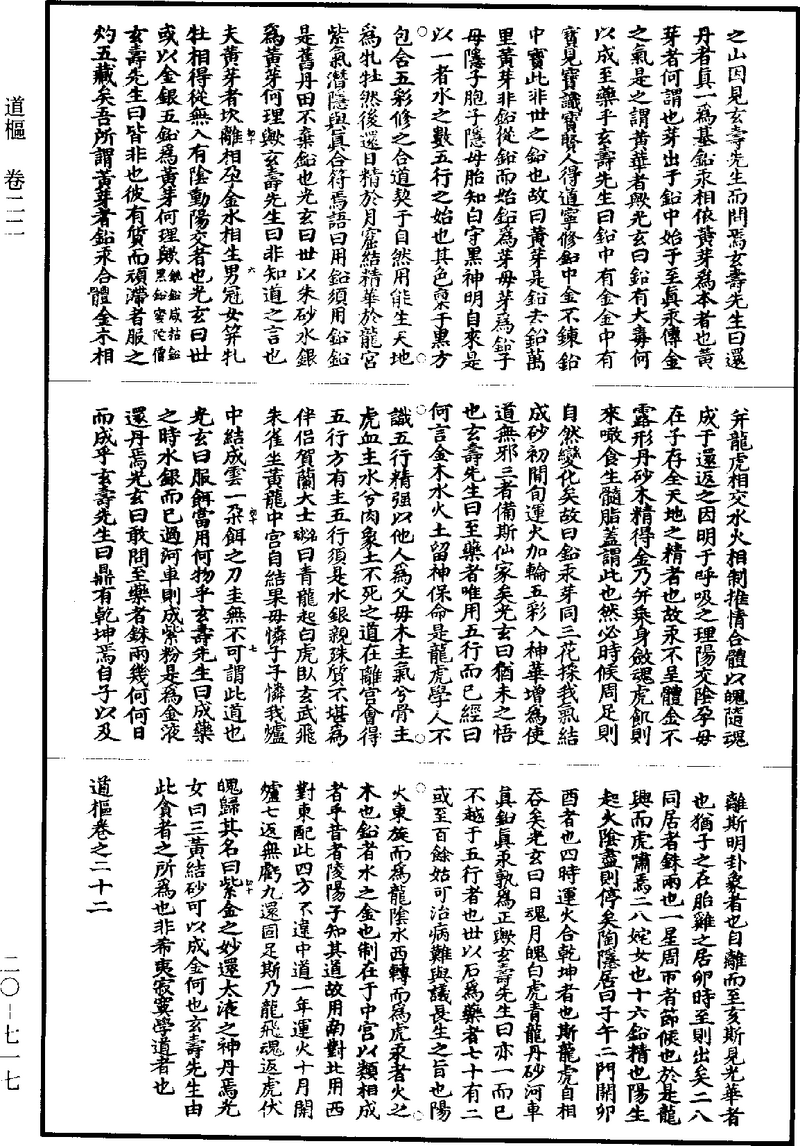 道樞　卷二二
二〇-七一七
之山因見玄壽先生而問焉玄壽先生曰還
丹者真一爲基鉛汞相依黃芽爲本者也黃
芽者何謂也芽出于鉛中始于至真汞傳金
之氣是之謂黃華者歟光玄曰鉛有大毒何
以成至藥乎玄壽先生曰鉛中有金金中有
寶見寶識寶賢人得道寧修鉛中金不鍊鉛
中寶此非世之鉛也故曰黃芽是鉛去鉛萬
里黃芽非鉛從鉛而始鉛爲芽母芽爲鉛子
母隱子胞子隱母胎知白守黑神明自來是
以一者水之數五行之始也其色稟于黑方
包含五彩修之合道契于自然用能生天地
爲牝牡然後還日精於月窟結精華於龍宮
紫氣潛隱與真合符焉語曰用鉛須用鉛鉛
是舊丹田不棄鉛也光玄曰世以朱砂水銀
爲黃芽何理歟玄壽先生曰非知道之言也
夫黃芽者坎離相孕金水相生男冠女笄牝
牡相得從無入有陰動陽交者也光玄曰世
或以金銀五鉛爲黃芽何理歟
玄壽先生曰皆非也彼有質而頑滯者服之
灼五藏矣吾所謂黃芽者鉛汞合體金木相
并龍虎相交水火相制推情合體以魄隨魂
成于還返之因明于呼吸之理陽交陰孕母
在子存全天地之精者也故汞不呈體金不
露形丹砂木精得金乃并乘身斂魂虎飢則
來噉食生髓脂蓋謂此也然必時候周足則
自然變化矣故曰鉛汞芽同三花採我氣結
成砂初開旬運火加輪五彩入神華增爲使
道無邪三者備斯仙家矣光玄曰猶未之悟
也玄壽先生曰至藥者唯用五行而已經曰
何言金木水火土留神保命是龍虎學人不
識五行精强以他人爲父母木主氣兮骨主
虎血主水兮肉象土不死之道在離宮會得
五行方有主五行須是水銀親殊質不堪爲
伴侶賀蘭大士曰青龍起白虎臥玄武飛
朱雀坐黃龍中宮自結果母憐子子憐我爐
中結成雲一朶餌之刀圭無不可謂此道也
光玄曰服餌當用何物乎玄壽先生曰成藥
之時水銀而已過河車則成紫粉是爲金液
還丹焉光玄曰敢問至藥者銖兩幾何何日
而成乎玄壽先生曰鼎有乾坤焉自子以及
離斯明卦象者也自離而至亥斯見光華者
也猶子之在胎雞之居卵時至則出矣二八
同居者銖兩也一星周帀者節候也於是龍
興而虎嘯焉二八姹女也十六鉛精也陽生
起火陰盡則停矣陶隱居曰子午二門開卯
酉者也四時運火合乾坤者也斯龍虎自相
吞矣光玄曰日魂月魄白虎青龍丹砂河車
真鉛真汞孰爲正歟玄壽先生曰亦一而已
不越于五行者也世以石爲藥者七十有二
或至百餘始可治病難與議長生之旨也陽
火東旋而爲龍陰水西轉而爲虎汞者火之
木也鉛者水之金也制在于中宮以類相成
者乎昔者陵陽子知其道故用南對北用西
對東配此四方不違中道一年運火十月開
爐七返無虧九還固足斯乃龍飛魂返虎伏
魄歸其名曰紫金之妙還大液之神丹焉光
女曰三黃結砂可以成金何也玄壽先生由
此貪者之所爲也非希夷寂寞學道者也
道樞卷之二十二